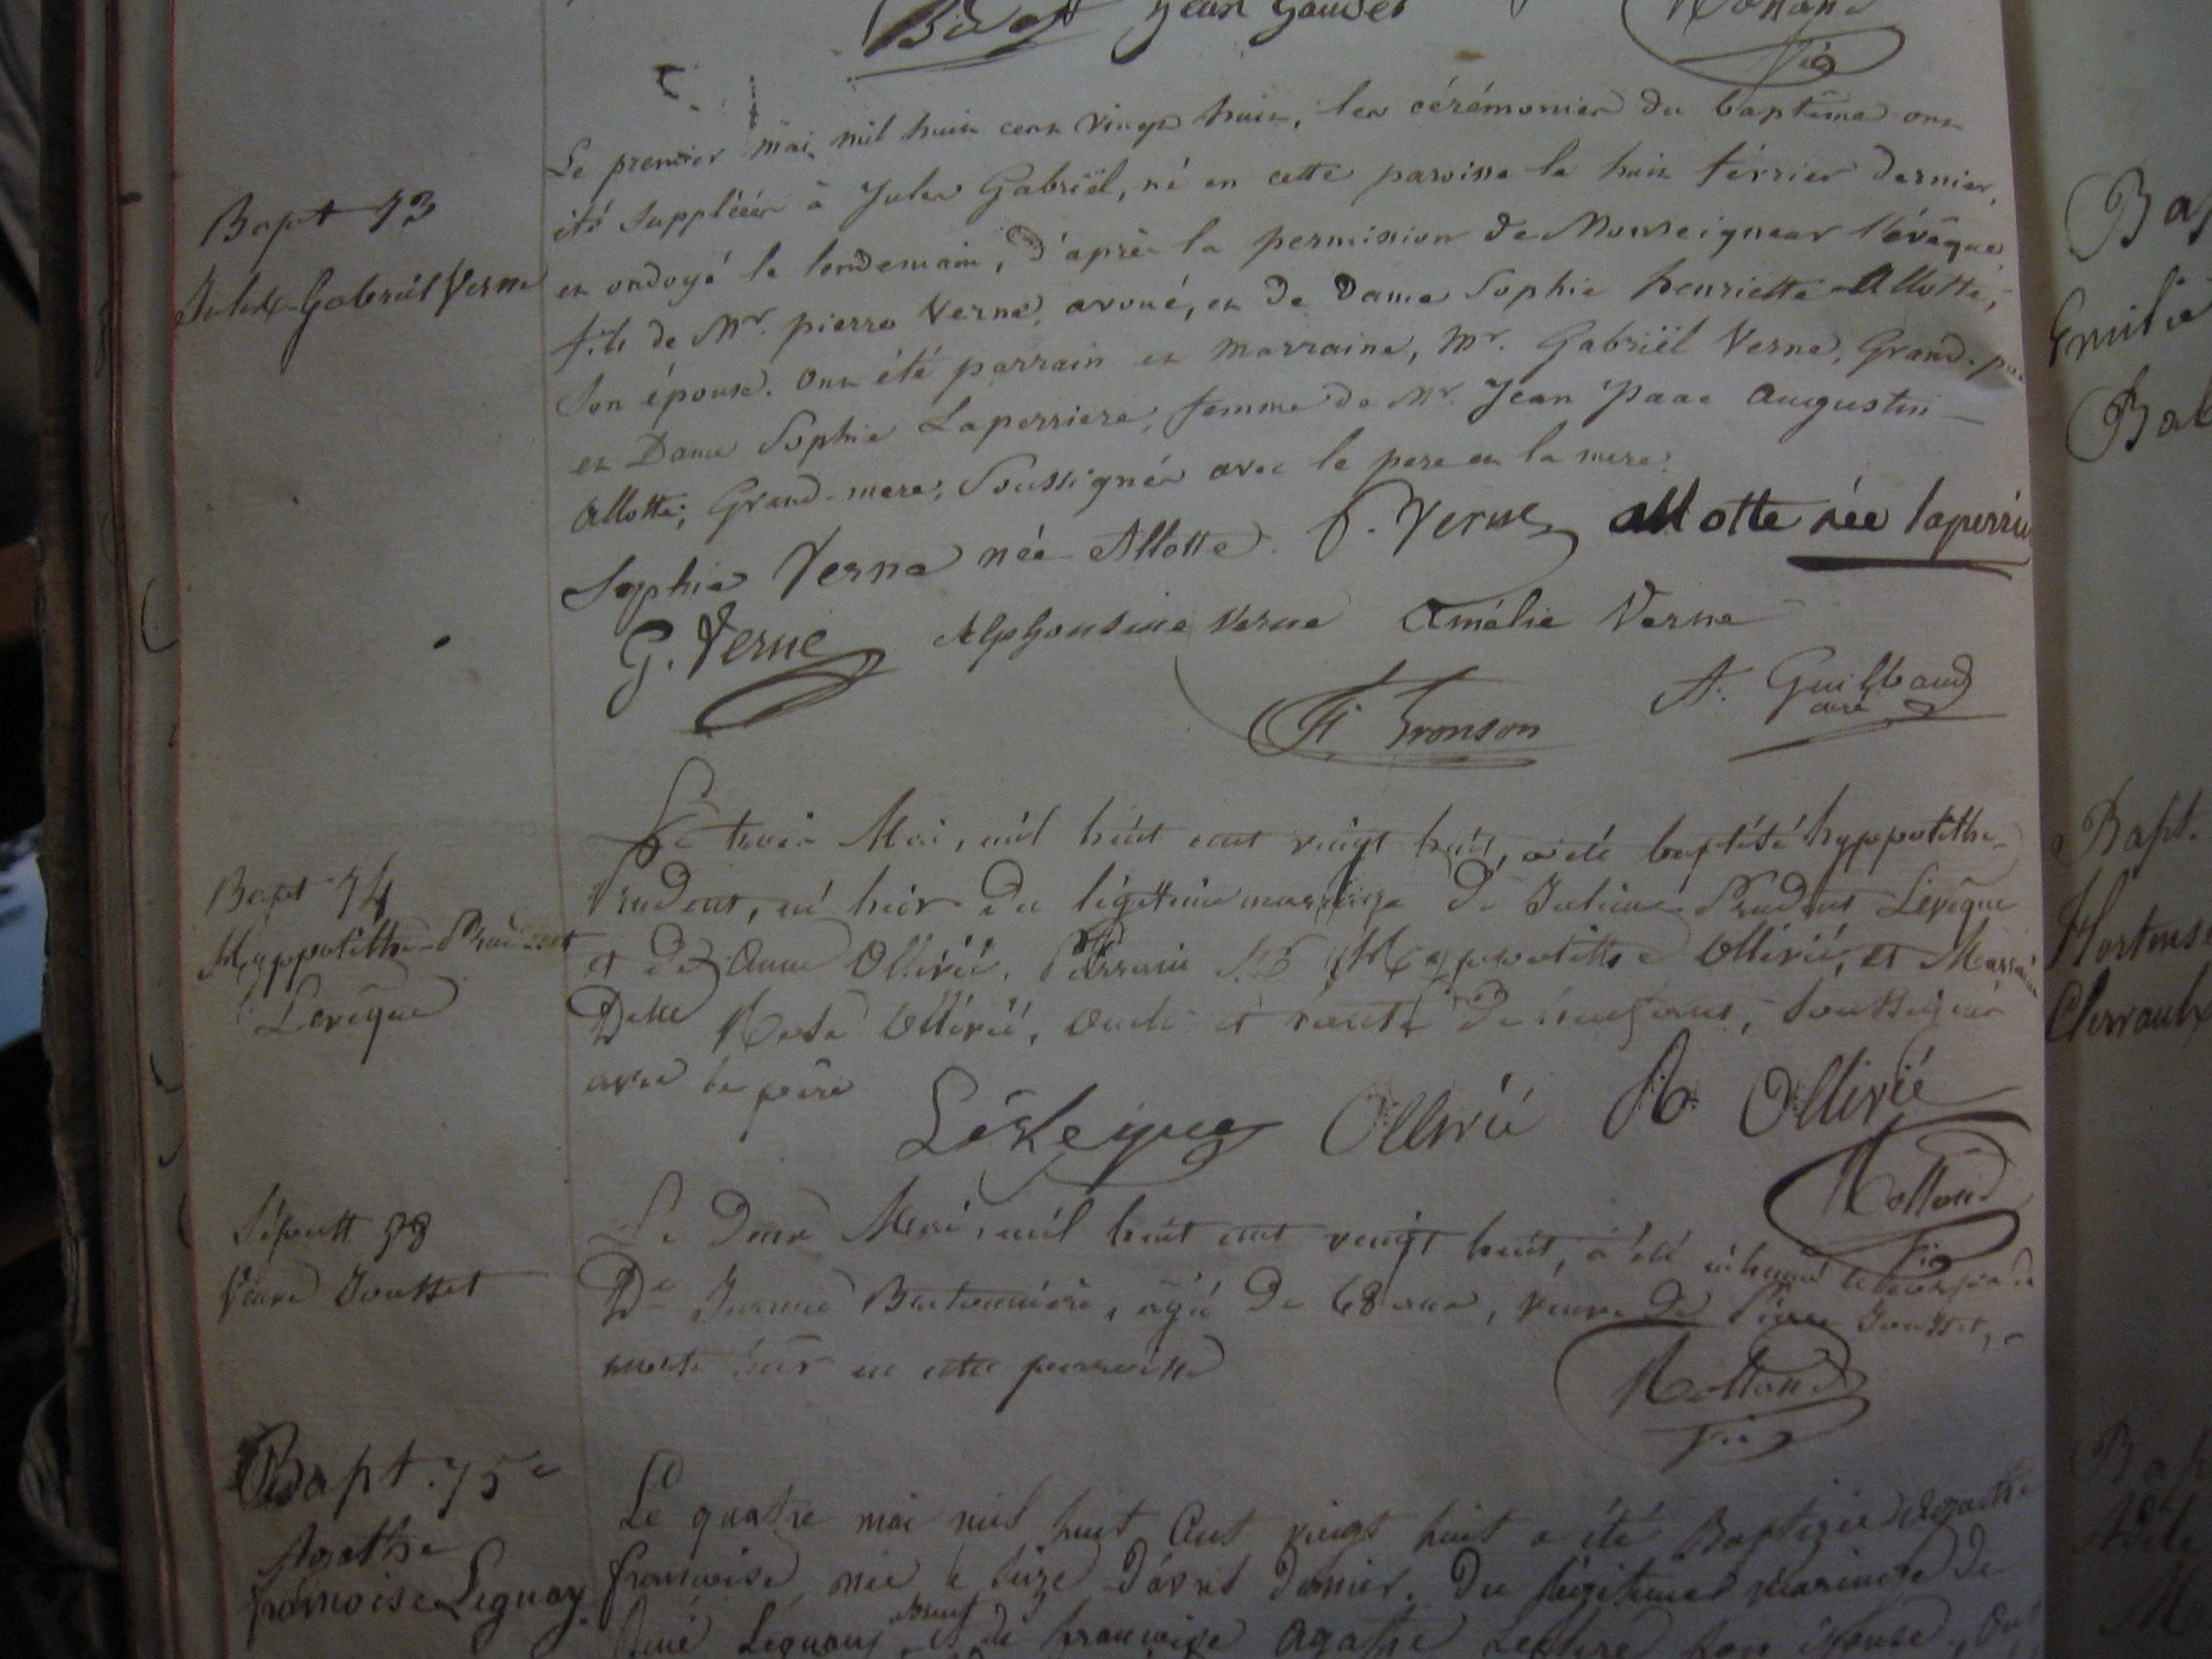 Jean Gaudet
Bapt 73
Jules-Gabriël Verne
Le premier mai mil huit cent vingt huit, les cérémonies du baptême ont
été suppléées à Jules Gabriël, né en cette paroisse le huit février dernier,
et ondoyé le lendemain, d'après la permission de Monseigneur l'évêque,
fils de Mr. pierre Verne, avoué, et de Dame Sophie henriette Allotte,
son épouse. Ont été parrain et marraine, Mr. Gabriël Verne, Grand-père
et Dame Sophie Laperriere, femme de Mr. Jean isaac augustin
allotte, Grand-mere, soussignés avec le pere et la mere.
Sophie Verne née Allotte P. Verne allotte née laperrie
G. Verne Alphonsine Verne Amélie Verne
F. Tronson A. Guilbaud
curé
Bapt 74
Hyppolithe-Prudent
Levêque
Le trois Mai, mil huit cent vingt huit, a été baptisé hyppolithe
Prudent, né hier du légitime mariage de Julien Prudent Levêque
et de Anne Ollivié. Parrain Mr Hyppolithe Ollivié, et Marraine
Delle Rose Ollivié, oncle et tante de l'enfant, soussignés
avec le père
Levêque Ollivié R Ollivié
Rolland
Vic
Sépult 78
Veuve Jousset
Le Deux Mai, mil huit cent vingt huit, a été inhumé le corps de
De Jeanne agée de 68 ans, veuve de Pierre Jousset,
morte hier en cette paroisse
Rolland
Vic
Bapt. 75e
Agathe
françoise Leguay
Le quatre mai mil huit cent vingt huit a été Baptisée Agathe
françoise née le seize d'avril dernier. Du légitime mariage de
René Leguay absent et de françoise agathe son épouse, Ont
Bap
Emilie
Bapt.
Hortense
Bap
Adèle